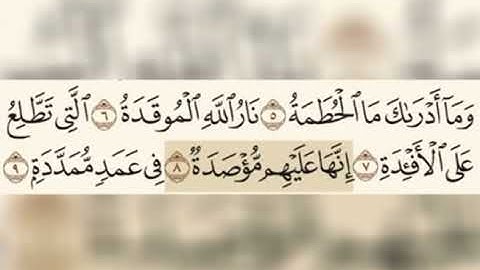 وَمَآ أَدْرَىٰكَ مَا ٱلْحُطَمَةُ ٥ نَارُ ٱللَّهِ ٱلْمُوقَدَةُ ٦ ٱلَّتِى تَطَّلِعُ
عَلَى ٱلْأَفْـِٔدَةِ ٧ إِنَّهَا عَلَيْهِم مُّؤْصَدَةٌ ٨ فِى عَمَدٍ مُّمَدَّدَةٍۭ ٩